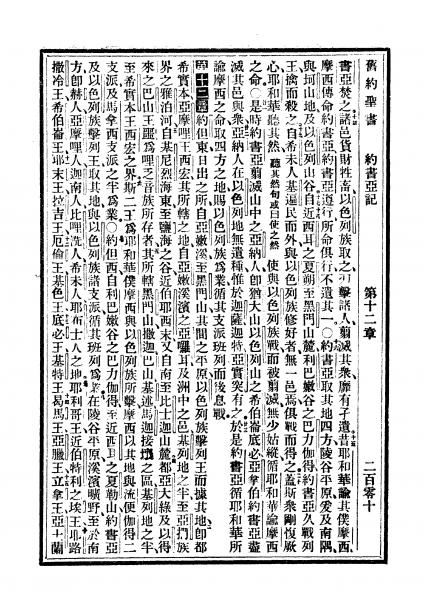 舊約聖書 約書亞記 第十二章 二百零十
書亞焚之諸邑貨財牲畜以色列族取之可擊諸人翦滅其衆靡有孑遺昔耶和華諭其僕摩西
摩西傳命約書亞約書亞遵行所命俱行不遺其一○約書亞取其地四方陵谷平原爰及南隅
與坷山地及以色列山谷自近西耳之夏朔至黑門山麓利巴嫩谷之巴力伽得約書亞久戰列
王擒而殺之自希未人基遍民而外與以色列族修好者無一邑焉俱戰而得之蓋斯衆剛愎厥
心耶和華聽其然 聽其然句或曰使之然 使與以色列族戰而被翦滅無少姑縱循耶和華諭摩西
之命○是時約書亞翦滅山中之亞納人卽猶大山以色列山之希伯崙底必亞拿伯約書亞盡
滅其邑與衆亞納人在以色列地無遺種惟於迦薩迦特亞實突有之於是約書亞循耶和華所
諭摩西之命取四方之地賜以色列族爲業循其支派班列而後息戰
第十二章 約但東日出之所自亞嫩溪至黑門山其間之平原以色列族擊列王而據其地卽都
希實本亞摩哩王西宏其所轄之地自亞嫩溪濱之亞囉耳及洲中之邑基列地之半至亞捫族
界之雅泊河自基尼烈海東至鹽海之谷近伯耶西末又自南至比士迦山麓都亞大綠及以得
來之巴山王噩爲哩乏音族所存者其所轄黑門山撒迦巴山基述馬迦接壤之區基列地之半
至希實本王西宏之界斯二王爲耶和華僕摩西與以色列族所擊摩西以其地與流便伽得二
支派及馬拿西支派之半爲業○約但西自利巴嫩谷之巴力伽得至近西耳之夏勒山約書亞
及以色列族擊列王取其地與以色列族諸支派循其班列爲業在陵谷平原溪濱曠野至於南
方卽赫人亞摩哩人迦南人比哩洗人希未人耶布士人之地耶利哥王近伯特利之埃王耶路
撒冷王希伯崙王耶末王拉吉王厄倫王基色王底必王基特王曷馬王亞臘王立拿王亞土蘭